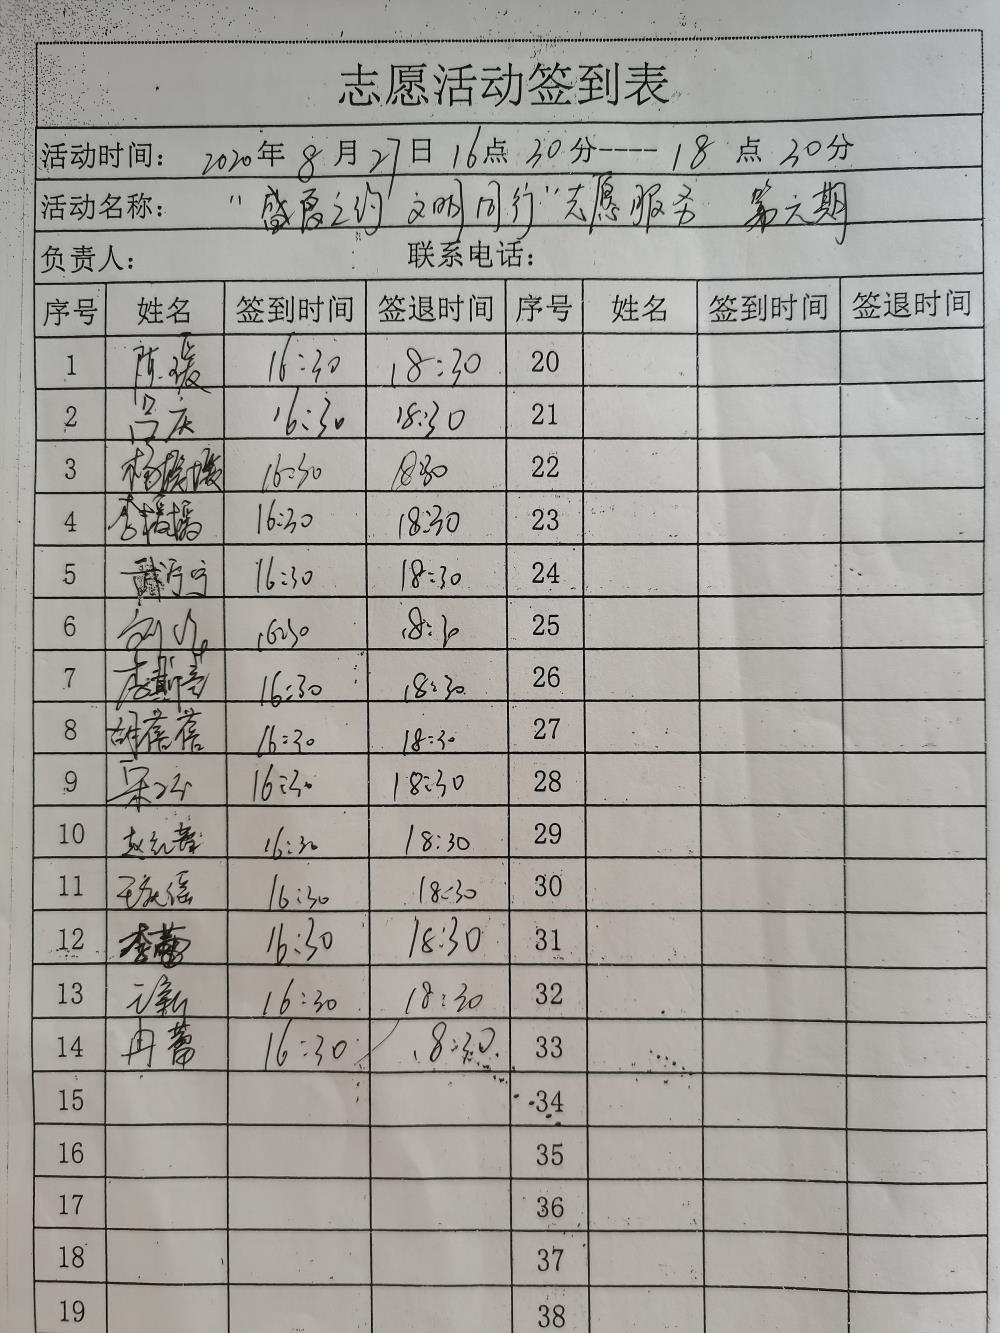 志愿活动签到表
活动时间： 2020年 8 月 27日 16点 30分----18 点 30分
活动名称： "盛夏之约 文明同行"志愿服务 第六期
负责人： 联系电话：
序号 姓名 签到时间 签退时间 序号 姓名 签到时间 签退时间
1 陈瑷 16:30 18:30 20
2 吕庆 16:30 18:30 21
3 16:30 18:30 22
4 16:30 18:30 23
5 16:30 18:30 24
6 16:30 18:30 25
7 16:30 18:30 26
8 胡蓓蓓 16:30 18:30 27
9 16:30 18:30 28
10 16:30 18:30 29
11 16:30 18:30 30
12 李蕾 16:30 18:30 31
13 16:30 18:30 32
14 冉蕾 16:30 18:30 33
15 34
16 35
17 36
18 37
19 38